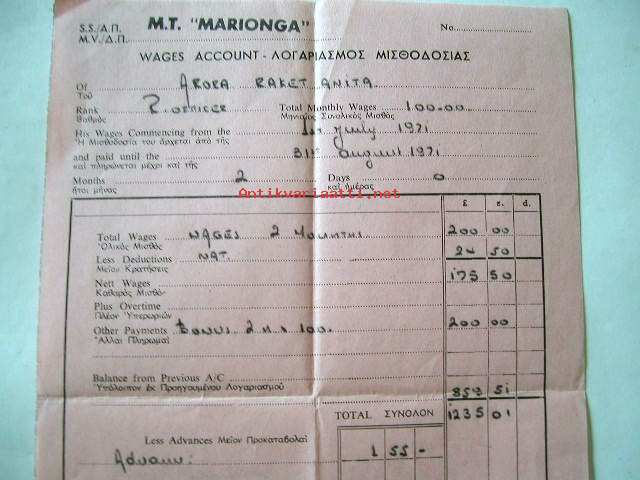 S.S./Α.Π. M.T. "MARIONGA" No.
M.V./Δ.Π.
WAGES ACCOUNT - ΛΟΓΑΡΙΑΣΜΟΣ ΜΙΣΘΟΔΟΣΙΑΣ
Of ARORA RAKET ANITA
Τοῦ
Rank R. OFFICER Total Monthly Wages 100-00
Βαθμός Μηνιαῖος Συνολικός Μισθός
His Wages Commencing from the 1st July 1971
Ἡ Μισθοδοσία του ἄρχεται ἀπό τῆς
and paid until the 31st August 1971
καί πληρώνεται μέχρι καί τῆς
Months 2 Days 0
ἤτοι μῆνας καί ἡμέρας
Antikvariaatti.net
£ s. d.
Total Wages WAGES 2 MONTHS 200 00
Ὁλικός Μισθός
Less Deductions NAT. 24 50
Μεῖον Κρατήσεις
Nett Wages 175 50
Καθαρός Μισθός
Plus Overtime
Πλέον Ὑπερωριῶν
Other Payments BONUS 2 M x 100. 200 00
Ἄλλαι Πληρωμαί
Balance from Previous A/C
Ὑπόλοιπον ἐκ Προηγουμένου Λογαριασμοῦ 859 51
TOTAL ΣΥΝΟΛΟΝ 1235 01
Less Advances Μεῖον Προκαταβολαί
1 55 -